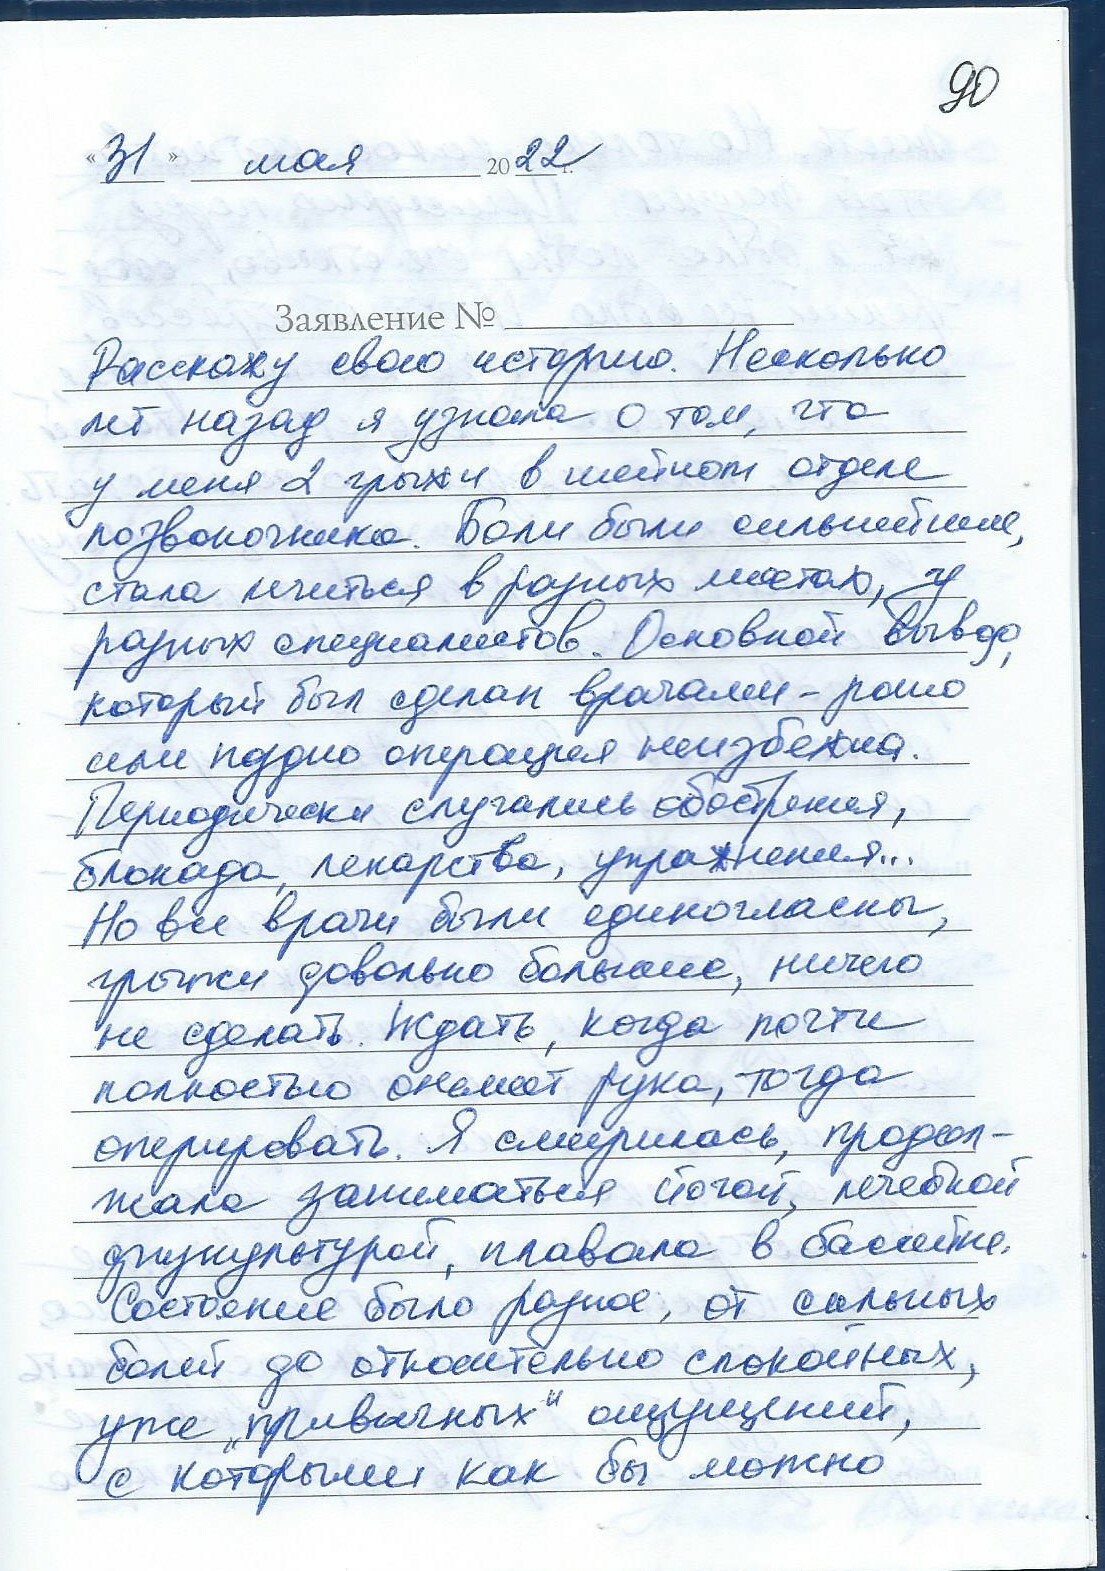 90
«31» мая 2022 г.
Заявление №
Расскажу свою историю. Несколько
лет назад я узнала о том, что
у меня 2 грыжи в шейном отделе
позвоночника. Боли были сильнейшие,
стала лечиться в разных местах, у
разных специалистов. Основной вывод,
который был сделан врачами – рано
или поздно операция неизбежна.
Периодически случались обострения,
блокада, лекарства, упражнения...
Но все врачи были единогласны,
грыжи довольно большие, ничего
не сделать. Ждать, когда почти
полностью онемеет рука, тогда
оперировать. Я смирилась, продол-
жала заниматься йогой, лечебной
физкультурой, плавала в бассейне.
Состояние было разное, от сильных
болей до относительно спокойных,
уже „привычных" ощущений,
с которыми как бы можно